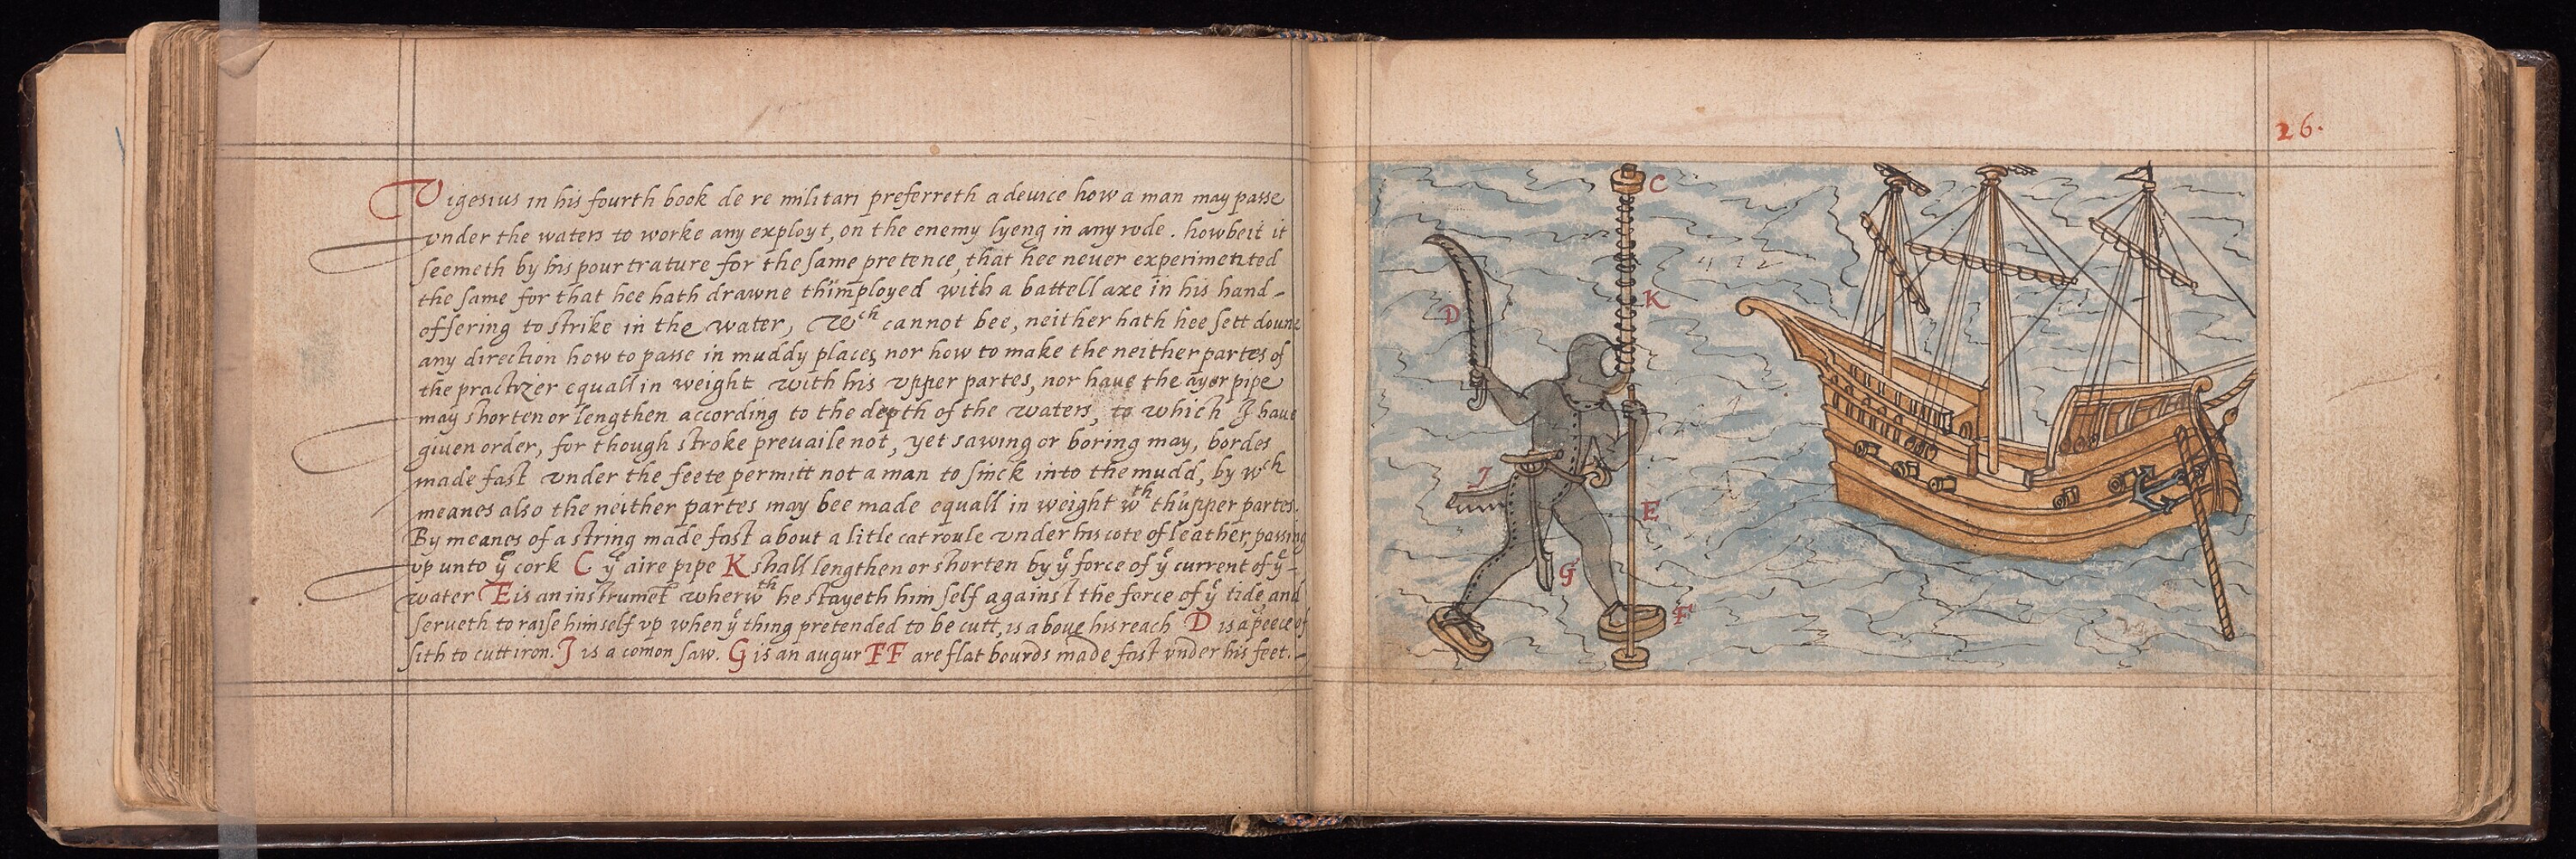 Vigesius in his fourth book de re militari preferreth a deuice how a man may passe
vnder the waters to worke any exployt, on the enemy lyeng in any rode. howbeit it
seemeth by his pourtrature for the same pretence, that hee neuer experimented
the same for that hee hath drawne thimployed with a battell axe in his hand-
offering to strike in the water, Wch cannot bee, neither hath hee sett doune
any direction how to passe in muddy places nor how to make the neither partes of
the practizer equall in weight with his vpper partes, nor haue the ayer pipe
may shorten or lengthen according to the depth of the waters, to which I haue
giuen order, for though stroke preuaile not, yet sawing or boring may, bordes
made fast vnder the feete permitt not a man to sinck into the mudd, by wch
meanes also the neither partes may bee made equall in weight wth thupper partes.
By meanes of a string made fast about a litle catroule vnder his cote of leather passing
vp unto ye cork C ye aire pipe K shall lengthen or shorten by ye force of ye current of ye-
water E is an instrumēt wherwth he stayeth him self against the force of ye tide, and
serueth to raise himself vp when ye thing pretended to be cutt, is aboue his reach D is a peece of
sith to cutt iron. I is a comon saw. G is an augur FF are flat bourds made fast vnder his feet.-
26.
C
K
D
I
E
G
F